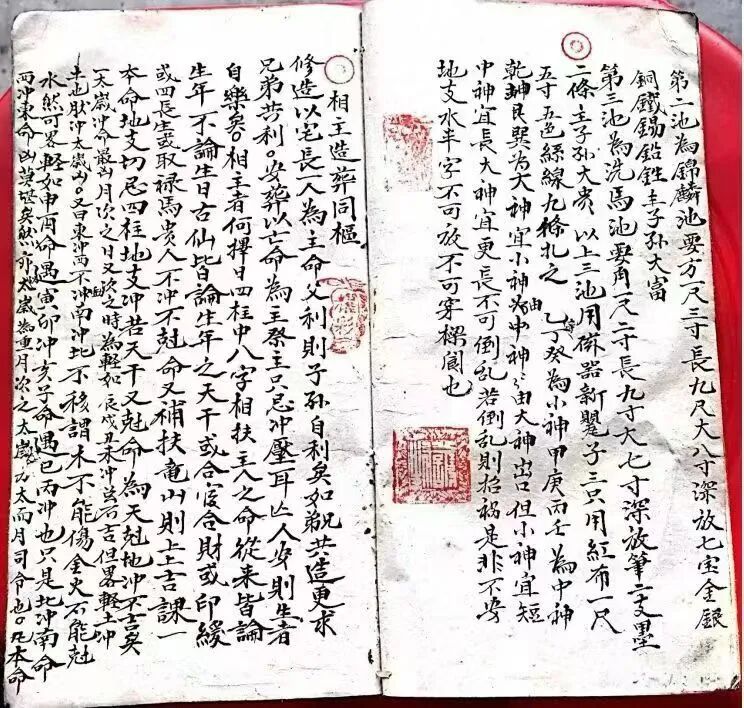 第二池為錦麟池要方一尺三寸長九尺大八寸深放七宝金銀
銅鐵錫鉛鉎主子孫大富
第三池為洗馬池要角一尺二寸長九寸大七寸深放筆二支墨
二條主子孫大贵以上三池用磁器新甖子三只用紅布一尺
五寸五色絲線九條扎之乙辛丁癸為小神甲庚丙壬為中神
乾坤艮巽為大神宜小神為由中神由大神出口但小神宜短
中神宜長大神宜更長不可倒乱若倒乱則招禍是非不安
地支水半字不可放不可穿樑閣也
相主造葬同樞
修造以宅長一人為主命父利則子孫自利矣如弟兄共造更求
兄弟共利安葬以亡命為主祭主只忌冲壓耳亡人安則生者
自樂矣相主者何擇日四柱中八字相扶主人之命從来皆論
生年不論生日古仙皆論生年之天干或合官合財或印綬
或四長生或取禄馬贵人不冲不尅命又補扶竜山則上上吉課一
本命地支切忌四柱地支冲若天干又尅命為天尅地冲不吉矣
一太歲冲命最凶月次之日又次之時為輕如辰戌丑未冲
土也㱕冲太歲凶又曰東冲西不冲南冲北不移謂木不能傷金火不能尅
水然可畧輕如申酉命遇寅卯冲亥子命遇巳丙冲也只是北冲南命
西冲東命凶莫堪矣然亦太歲為重月次之太歲